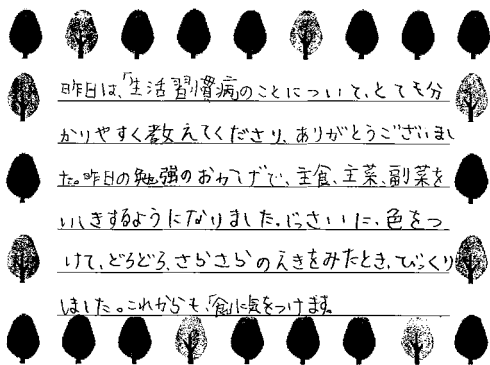 昨日は、「生活習慣病」のことについて、とても分
かりやすく教えてくださり、ありがとうございまし
た。昨日の勉強のおかげで、主食、主菜、副菜を
いしきするようになりました。じっさいに、色をつ
けて、どろどろ、さらさらのえきをみたとき、びっくり
しました。これからも、「食」に気をつけます。